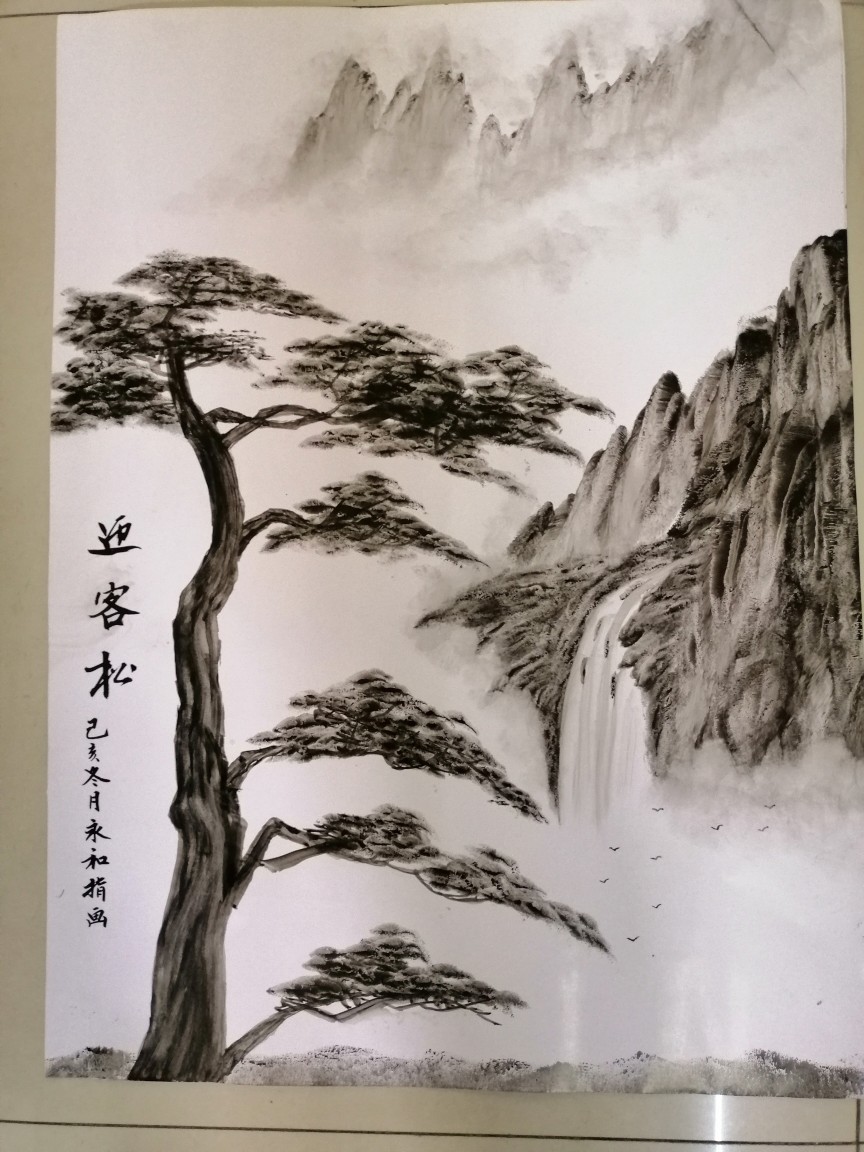 迎客松
己亥冬月永和指画